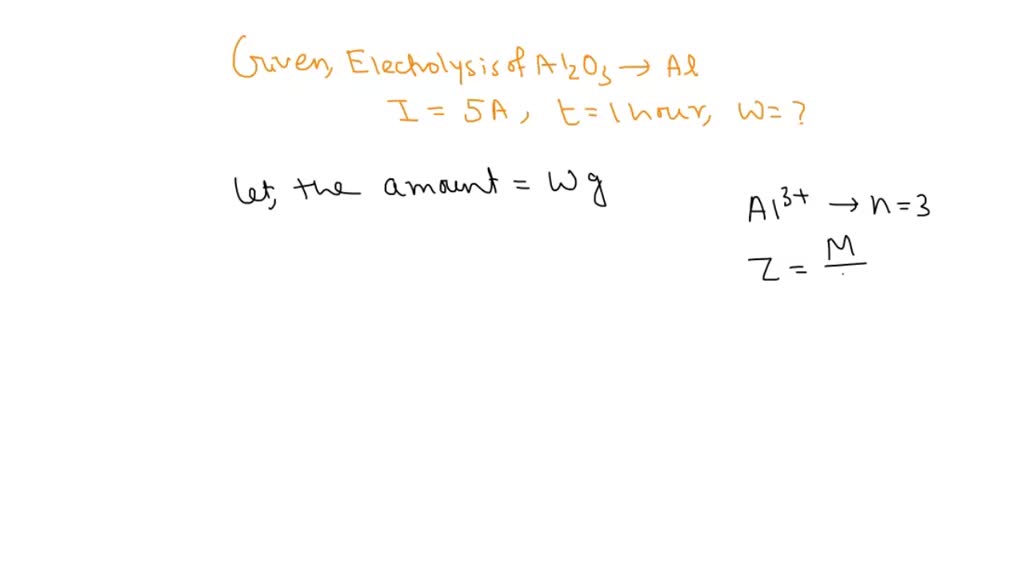 Given, Electrolysis of Al2O3 → Al
I = 5A, t = 1 hour, W = ?
let, the amount = W g
Al3+ → n = 3
Z = M